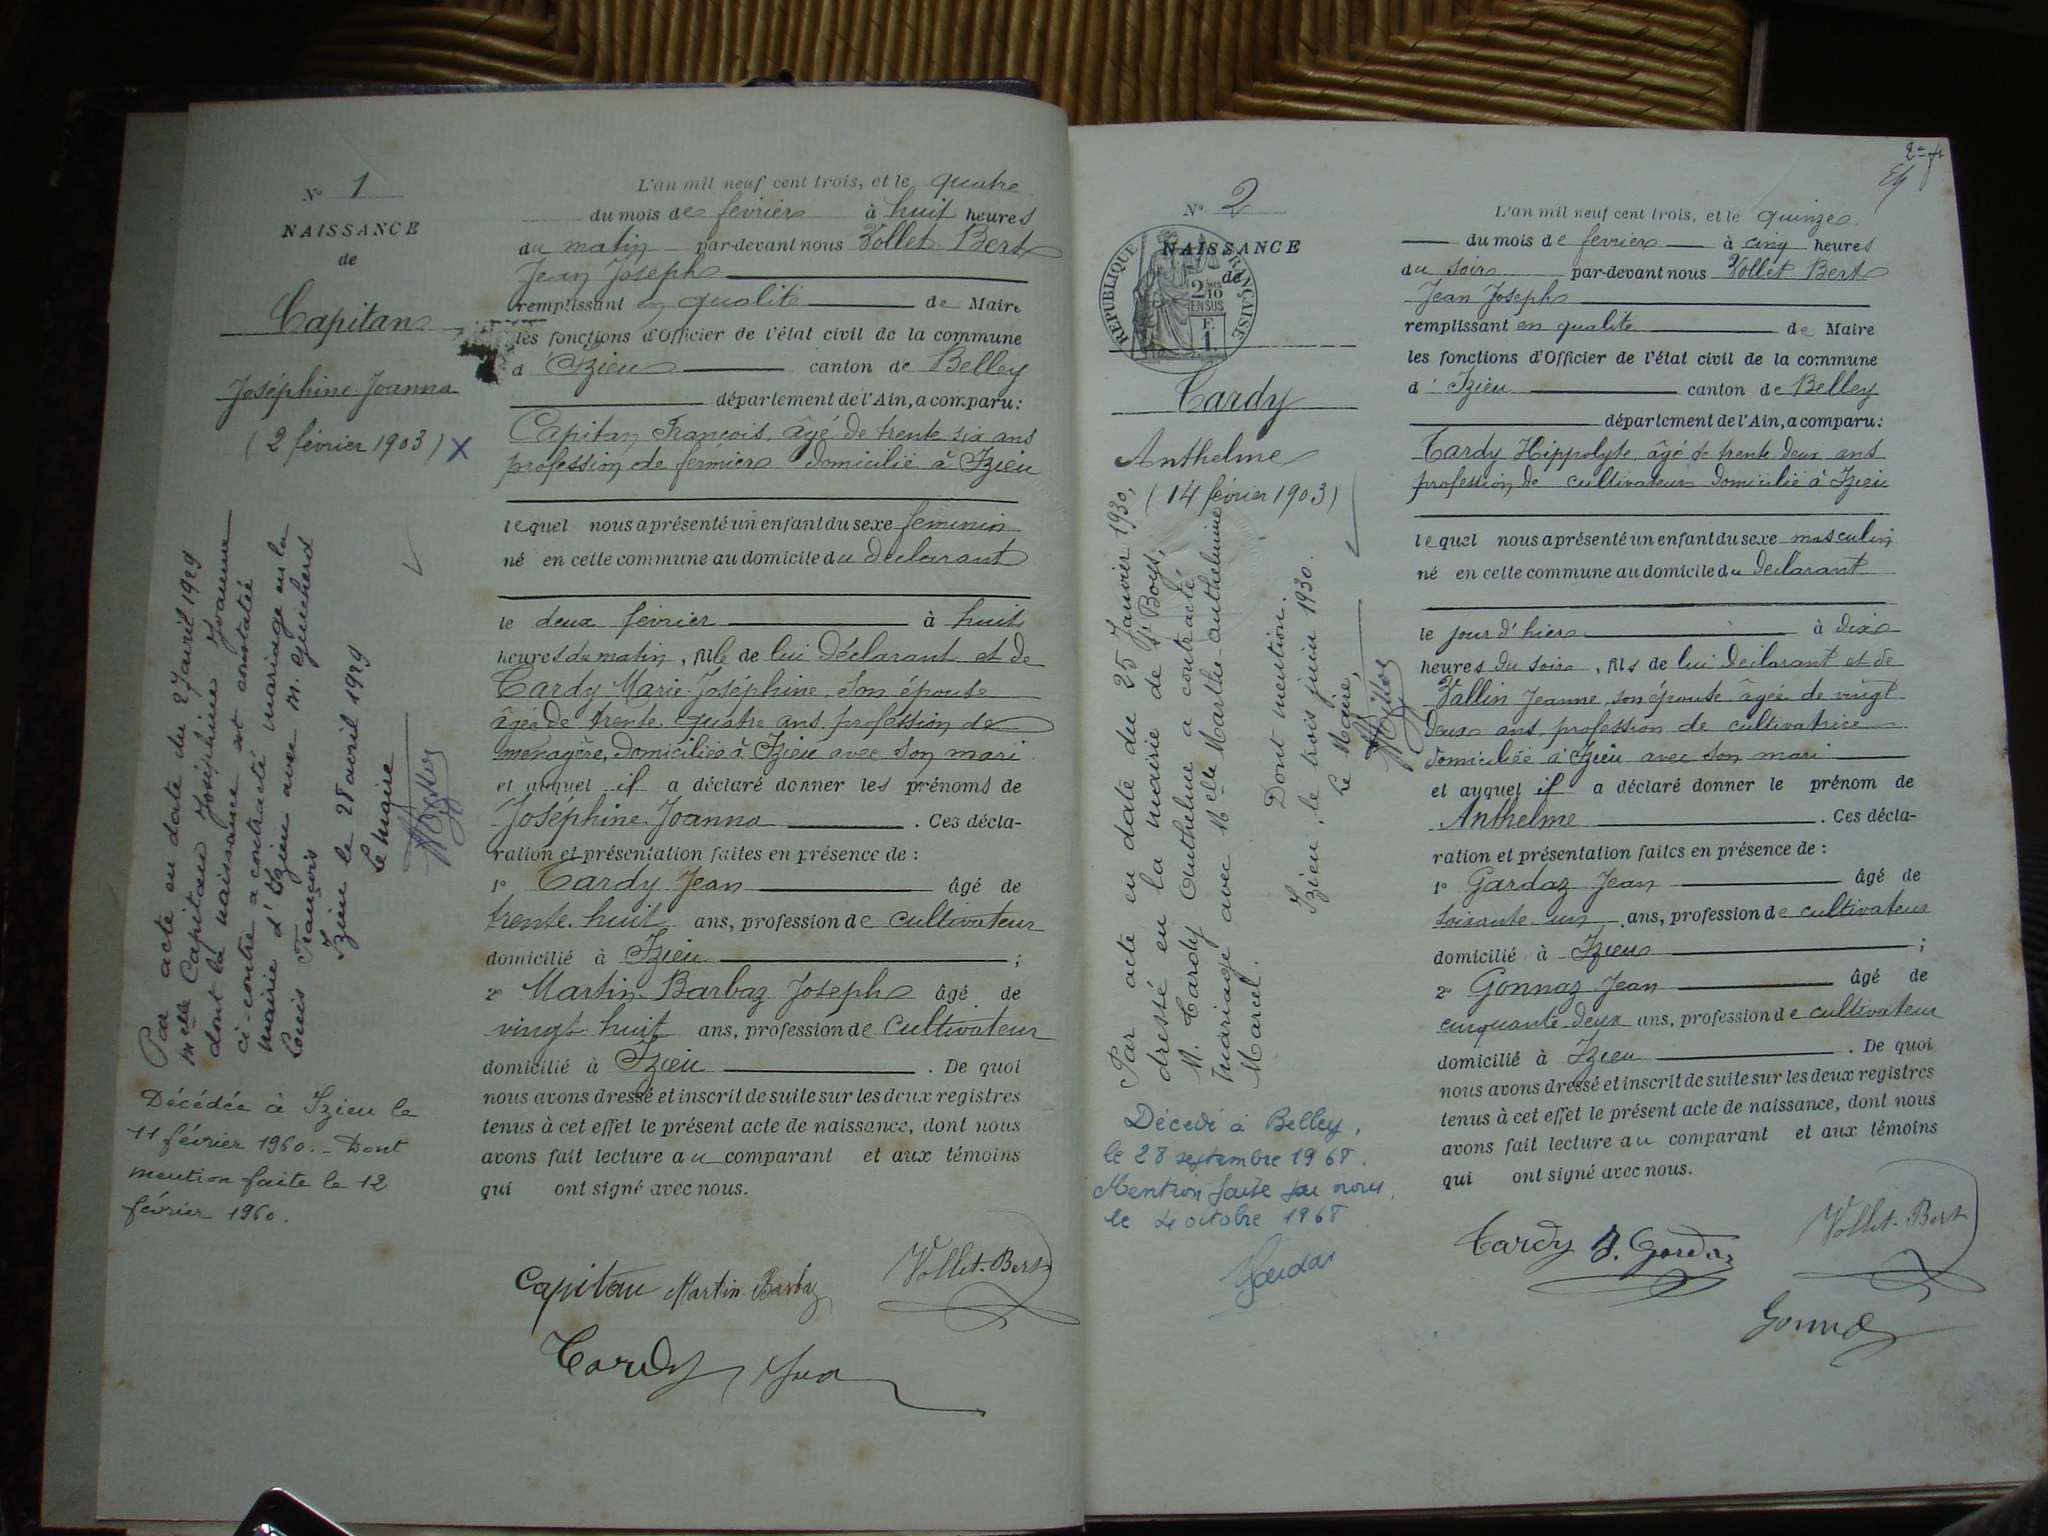 N° 1
NAISSANCE
de
Capitan
Joséphine Joanna
(2 février 1903) X
Par acte en date du 27 avril 1929
Melle Capitan Joséphine Joanna
dont la naissance est constatée
ci-contre a contracté mariage en la
mairie d'Izieu avec M. Guichard
Louis François
Izieu le 28 avril 1929
Le Maire
Décédée à Izieu le
11 février 1960. - Dont
mention faite le 12
février 1960.
L'an mil neuf cent trois, et le quatre
du mois de fevrier à huit heures
du matin par-devant nous Vollet Bert
Jean Joseph
remplissant en qualité de Maire
les fonctions d'Officier de l'état civil de la commune
d Izieu canton de Belley
département de l'Ain, a comparu:
Capitan François, âgé de trente six ans
profession de fermier domicilié à Izieu
lequel nous a présenté un enfant du sexe feminin
né en cette commune au domicile du déclarant
le deux février à huit
heures du matin, fille de lui Déclarant et de
Tardy Marie Joséphine, son épouse
âgée de trente quatre ans profession de
menagère, domiciliée à Izieu avec son mari
et auquel il a déclaré donner les prénoms de
Joséphine Joanna . Ces décla-
ration et présentation faites en présence de :
1° Tardy Jean âgé de
trente huit ans, profession de cultivateur
domicilié à Izieu ;
2° Martin-Barbaz Joseph âgé de
vingt huit ans, profession de cultivateur
domicilié à Izieu . De quoi
nous avons dressé et inscrit de suite sur les deux registres
tenus à cet effet le présent acte de naissance, dont nous
avons fait lecture au comparant et aux témoins
qui ont signé avec nous.
Capitan Martin Barbaz Vollet-Bert
Tardy Jean
N° 2
NAISSANCE
de
REPUBLIQUE FRANÇAISE
2/10
EN SUS
F.
1.
Tardy
Anthelme
(14 février 1903)
Par acte en date du 25 Janvier 1930,
dressé en la mairie de St Boys,
M. Tardy Anthelme a contracté
mariage avec Melle Marthe Anthelmine
Marcel.
Dont mention.
Izieu, le trois juin 1930.
Le Maire,
Décédé à Belley,
le 28 septembre 1968.
Mention faite par nous,
le 4 octobre 1968
L'an mil neuf cent trois, et le quinze
du mois de fevrier à cinq heures
du soir par-devant nous Vollet Bert
Jean Joseph
remplissant en qualité de Maire
les fonctions d'Officier de l'état civil de la commune
d' Izieu canton de Belley
département de l'Ain, a comparu:
Tardy Hippolyte âgé de trente deux ans
profession de cultivateur domicilié à Izieu
lequel nous a présenté un enfant du sexe masculin
né en cette commune au domicile du déclarant
le jour d'hier à dix
heures du soir, fils de lui déclarant et de
Vallin Jeanne, son épouse âgée de vingt
deux ans profession de cultivatrice
domiciliée à Izieu avec son mari
et auquel il a déclaré donner le prénom de
Anthelme . Ces décla-
ration et présentation faites en présence de :
1° Gardaz Jean âgé de
soixante un ans, profession de cultivateur
domicilié à Izieu ;
2° Gonnaz Jean âgé de
cinquante deux ans, profession de cultivateur
domicilié à Izieu . De quoi
nous avons dressé et inscrit de suite sur les deux registres
tenus à cet effet le présent acte de naissance, dont nous
avons fait lecture au comparant et aux témoins
qui ont signé avec nous.
Tardy J. Gardaz Vollet-Bert